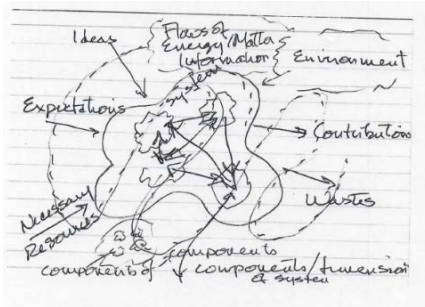 Ideas
Flows of
Energy/Matter
Information
Environment
System
Expectations
Contributions
Wastes
Necessary
Resources
components
components of
components/
of system